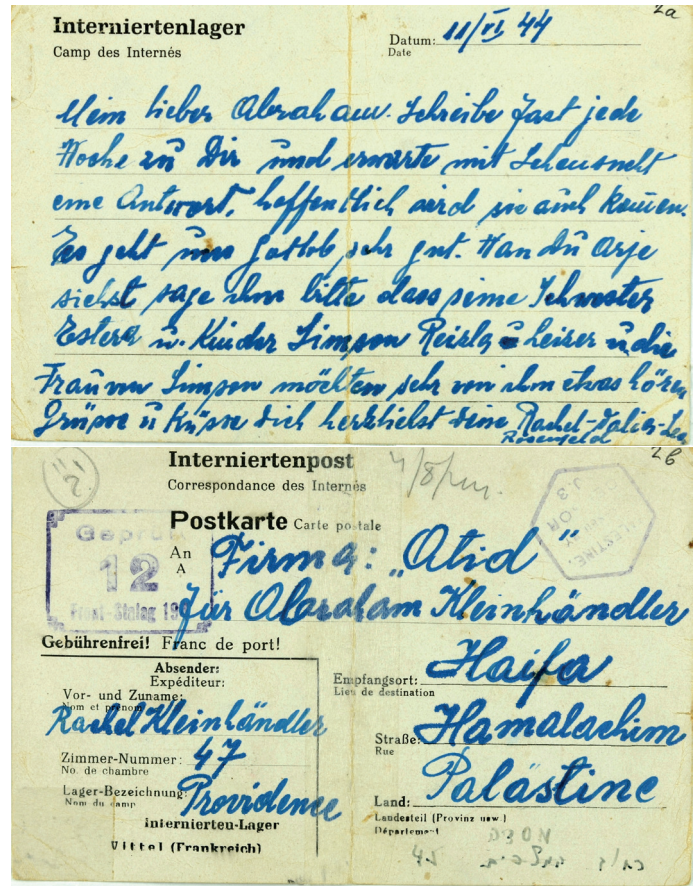 2a
Interniertenlager
Camp des Internés
Datum: 11/VI 44
Date
Mein lieber Abraham. Schreibe fast jede
Woche zu Dir und erwarte mit Sehensucht
eine Antwort, hoffentlich wird sie auch kommen.
Es geht uns gottlob sehr gut. Wan du Arje
siehst sage ihm bitte dass seine Schwester
Estera u. Kinder Simson Reisla u Leiser u die
Frau von Simson möchten sehr von ihm etwas hören
Grüsse u Küsse dich herzlichst deine Rachel-
Rosenfeld
2b
Interniertenpost
Correspondance des Internés
Postkarte Carte postale
Geprüft
12
Front-Stalag 19
PALESTINE.
J.3
An Firma: „Atid"
A
für Abraham Kleinhändler
Gebührenfrei! Franc de port!
Absender:
Expéditeur:
Vor- und Zuname:
Nom et prénom
Rachel Kleinhändler
Zimmer-Nummer: 47
No. de chambre
Lager-Bezeichnung: Providence
Nom du camp
Internierten-Lager
Vittel (Frankreich)
Empfangsort: Haifa
Lieu de destination
Straße: Hamalachim
Rue
Land: Palästine
Landesteil (Provinz usw.)
Département